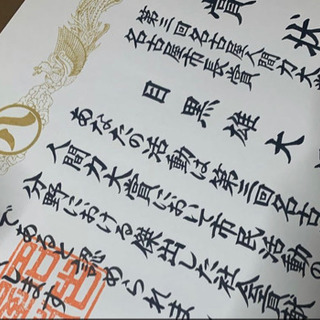 賞状
第三回名古屋人間力大
名古屋市長賞
目黒雄大
あなたの活動は第三回名古
人間力大賞において市民活動の
分野における傑出した社会貢献
であると認められま
します